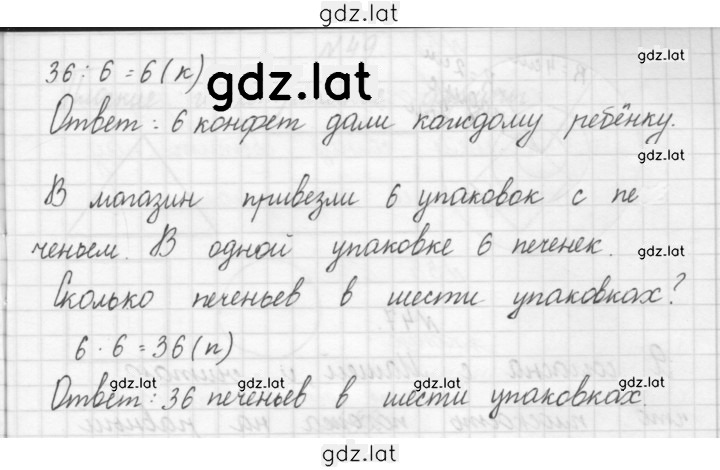 gdz.lat
36 : 6 = 6 (к)
gdz.lat
gdz.lat
Ответ : 6 конфет дали каждому ребёнку.
gdz.lat
В магазин привезли 6 упаковок с пе
ченьем. В одной упаковке 6 печенек.
gdz.lat
Сколько печеньев в шести упаковках?
gdz.lat
6 · 6 = 36 (п)
gdz.lat gdz.lat gdz.lat gdz.lat
Ответ : 36 печеньев в шести упаковках.
gdz.lat